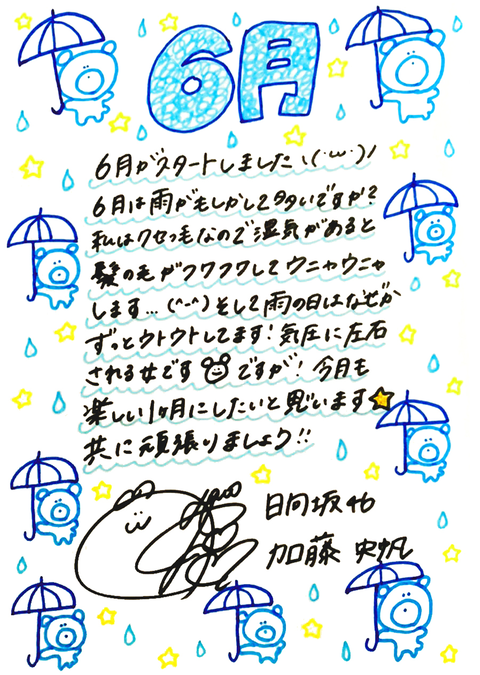 6月
6月がスタートしました＼(･ω･)/
6月は雨がもしかして多いですか?
私はクセっ毛なので湿気があると
髪の毛がフワフワしてウニャウニャ
します…(ᵔ-ᵔ)そして雨の日はなぜか
ずっとウトウトしてます!気圧に左右
される女です ですが!今月も
楽しい1ヶ月にしたいと思います
共に頑張りましょう!!
日向坂46
加藤 史帆